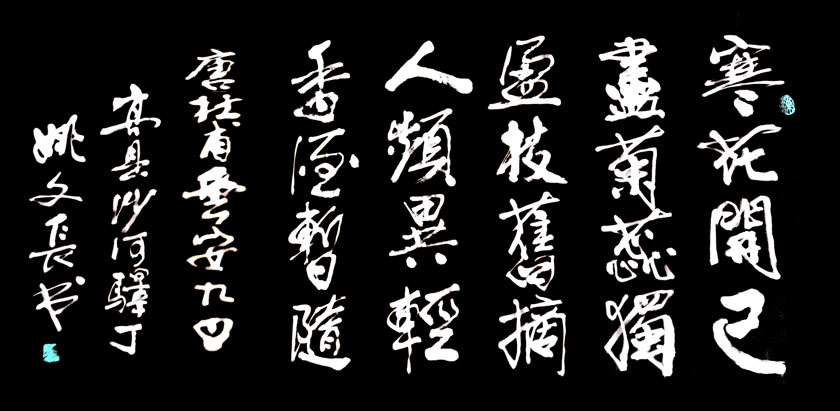 寒花開已
盡菊蕊獨
盈枝舊摘
人頻異輕
香酒暫隨
唐杜甫雲安九日
高县沙河驛丁
姚文長书